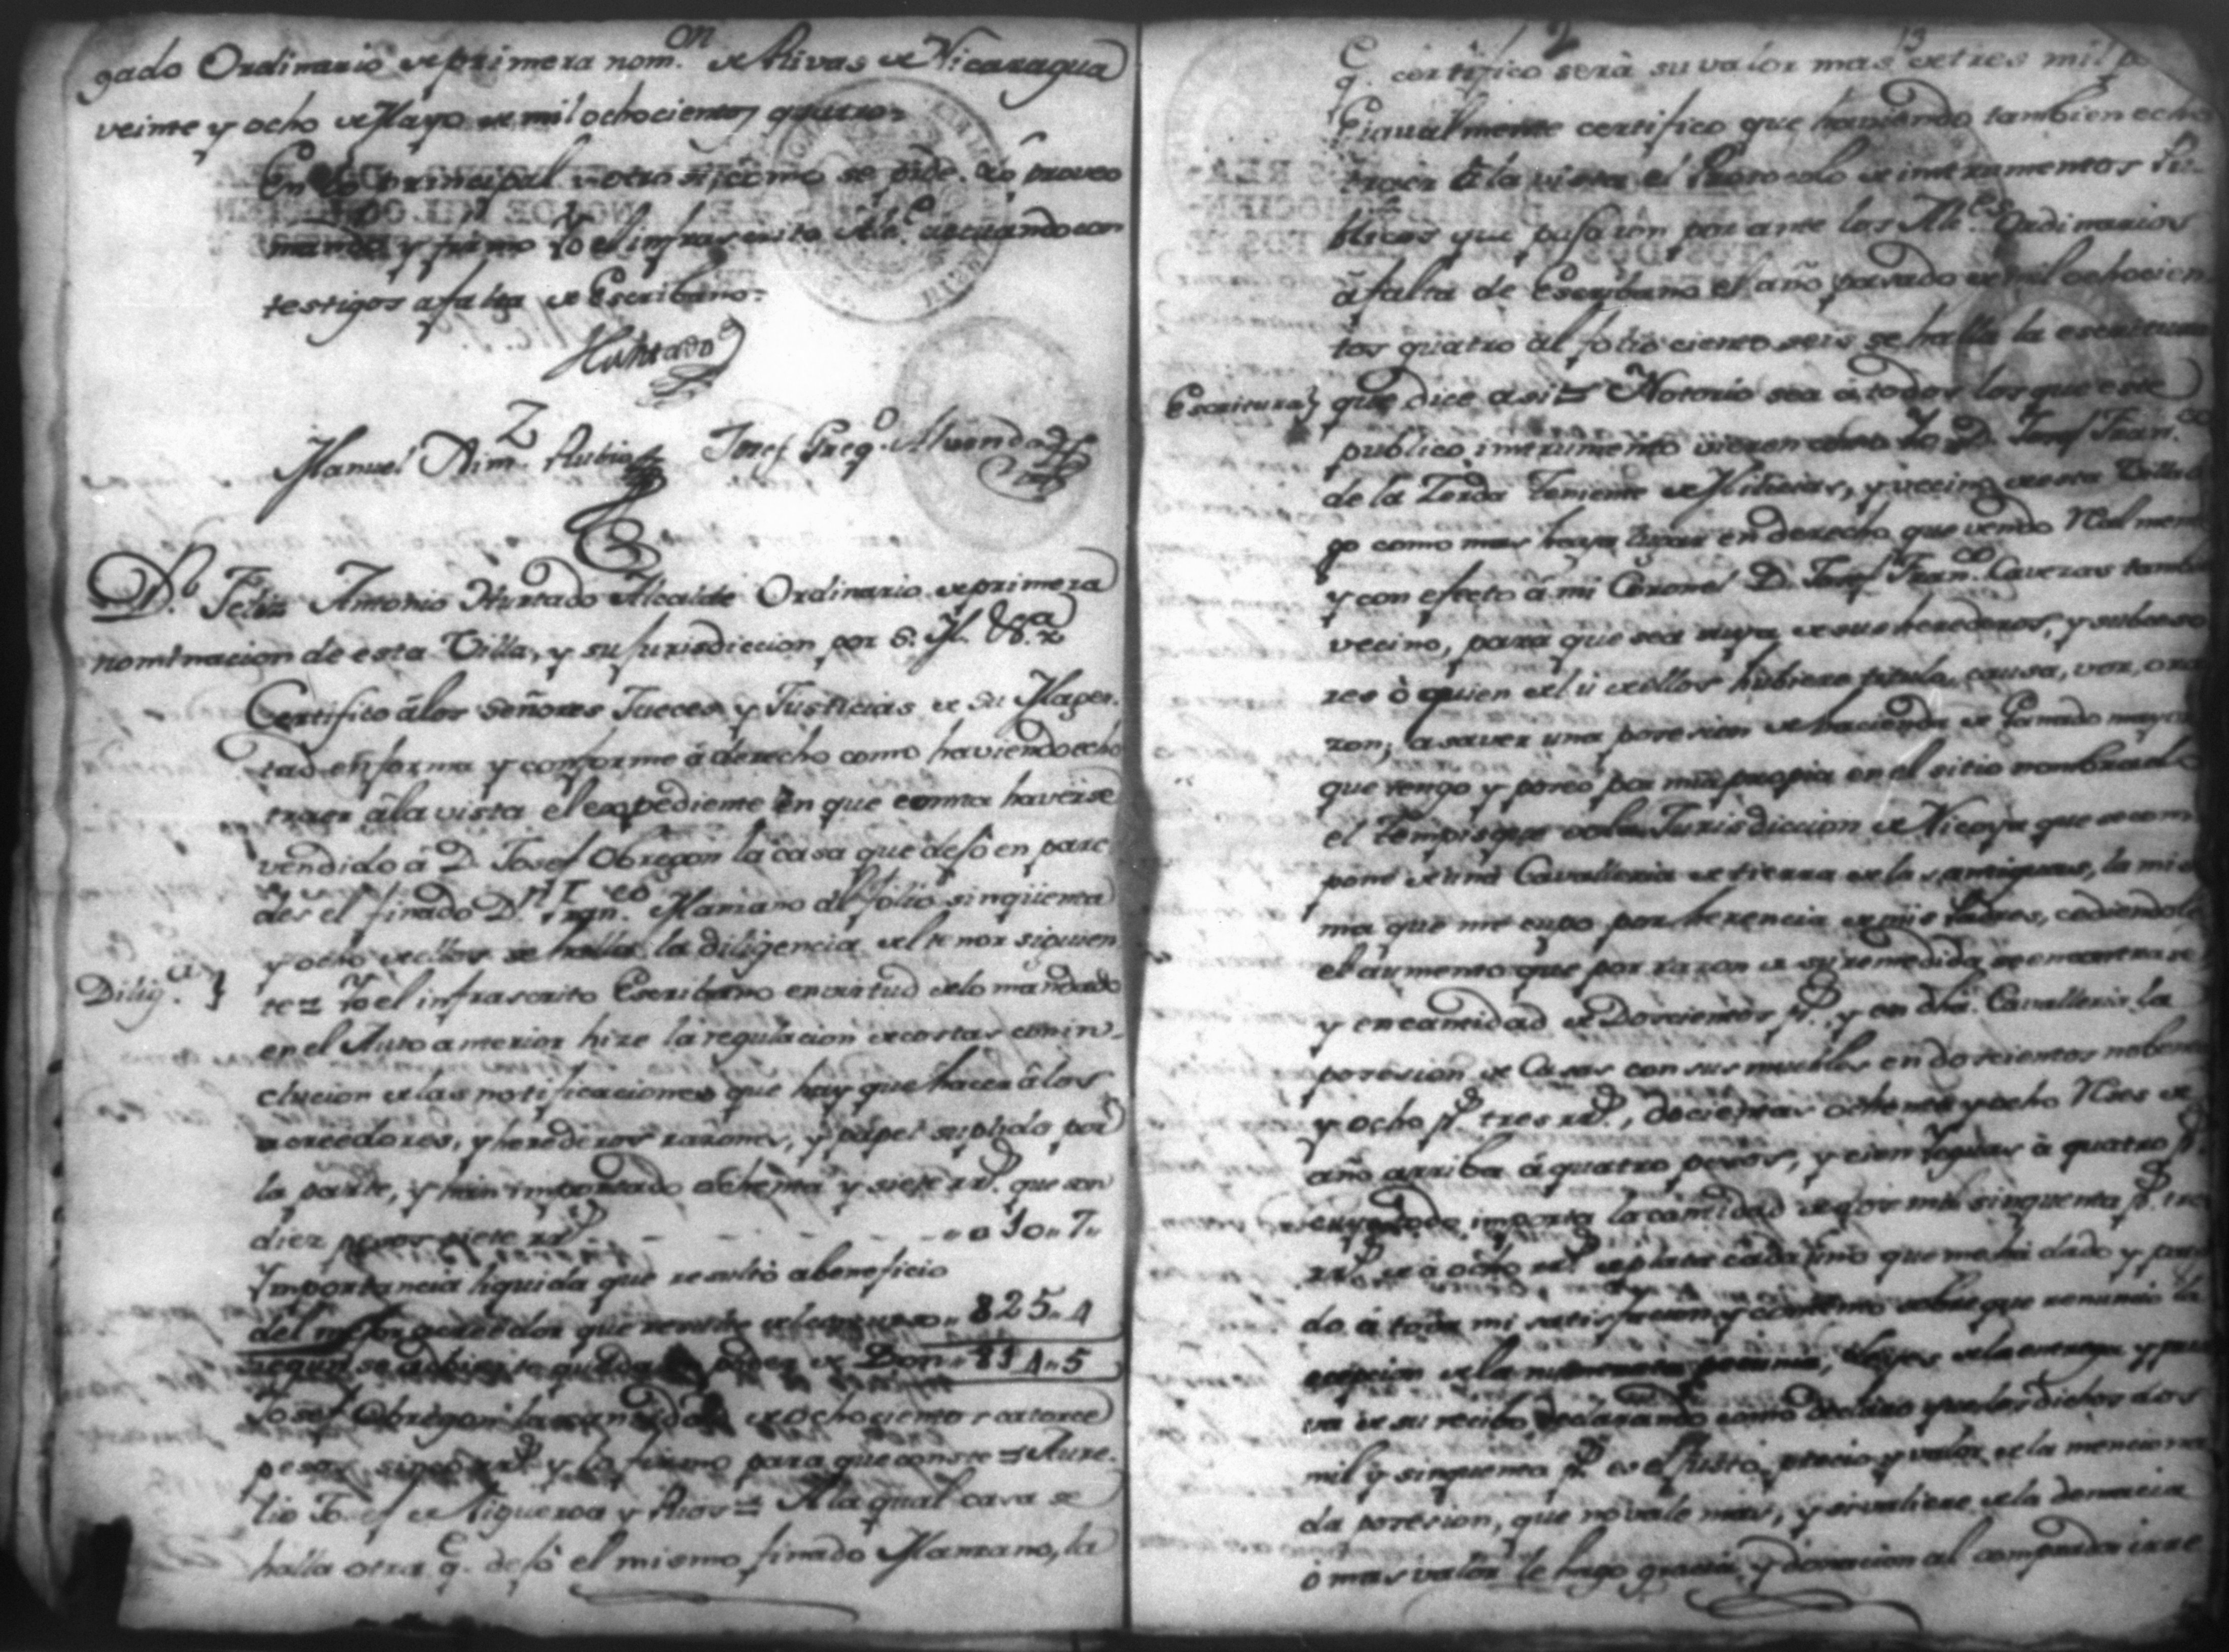 gado Ordinario de primera nom.on de Rivas de Nicaragua
veinte y ocho de Mayo de mil ochocientos quatro=
En lo principal y otro sí como se pide. Yo proveo
mando y firmo Yo el infrascrito Alc.e actuando con
testigos a falta de Escribano=
Hurtado
Manuel Rubio Josef Greg.o Alvendas
D.n Felix Antonio Hurtado Alcalde Ordinario de primera
nominacion de esta Villa, y su Jurisdiccion por S. M. &.a
Certifico â los señores Jueces y Justicias de su Mages-
tad en forma y conforme â derecho como haviendo echo
traer âla vista el expediente en que consta haverse
vendido â D. Josef Obregon la casa que dejô en pare
des el finado D. Fran.co Manzano al folio sinquenta
y ocho de ellos se halla la diligencia del tenor siguien
Dilig.a te= Yo el infrascrito Escribano en virtud de lo mandado
en el Auto anterior hize la regulacion de costas con in-
clucion de las notificaciones que hay que hacer âlos
acreedores, y herederos razones, y papel suplido por
la parte, y han importado ochenta y siete rr.s que son
diez pesos siete rr.s 10,, 7,,
Importancia liquida que resultó a beneficio
del mejor acreedor que 825,, 4
segun se adbierte queda en poder de Don 814,, 5
Josef Obregon la cantidad de ochocientos catorce
pesos sinco rr.s y lo firmo para que conste = Aure-
lio Josef de Figueroa y Rios = A la qual casa se
halla otra q.e dejô el mismo finado Manzano, la
2 13
q.e certifico será su valor mas de tres mil p
E igualmente certifico que haviendo tambien echo
traer â la vista el Protocolo de instrumentos Pu-
blicos que pasaron por ante los Alc.es Ordinarios
â falta de Escribano el año pasado de mil ochocien
tos quatro al folio ciento seis se halla la escritura
Escritura que dice asi = Notorio sea â todos los que este
publico instrumento vieren como Yo D. Josef Fran.co
de la Zerda Teniente de Milicias, y vecino de esta Villa
go como mas haya lugar en derecho que vendo Real mente
y con efecto â mi Coronel D. Josef Fran.co Caveras tambie
vecino, para que sea suya de sus herederos, y subceso
res ô quien de él ú de ellos hubiere titulo, causa, voz, o ra
zon; a saver una posesion de hacienda de Ganado mayor
que tengo y poseo por mia propia en el sitio nombrado
el Tempisque Jurisdiccion de Nicoya que se com
pone de una Cavalleria de tierra de las antiguas, la mis
ma que me cupo por herencia de mis Padres, cediendole
el aumento que por razon de su remedida se encontrare
y en cantidad de Doscientos p.s, y en dha. Cavalleria la
posesion de Casas con sus muebles en doscientos nobenta
y ocho p.s tres rr.s, docientas ochenta y ocho Reses de
año arriba â quatro pesos, y cien Yeguas â quatro p.s
cuyo todo importa la cantidad de dos mil sinquenta p.s tres
rr.s de â ocho rr.s de plata cada uno que me ha dado y paga
do â toda mi satisfaccion y contento sobre que renuncio la
esepcion de la pecunia, leyes de la entrega y prue
va de su recibo, declarando como declaro que los dichos dos
mil y sinquenta p.s es el justo precio y valor de la menciona
da posesion, que no vale mas, y si valiere de la demacia
ô mas valor le hago gracia, y donacion al comprador irre